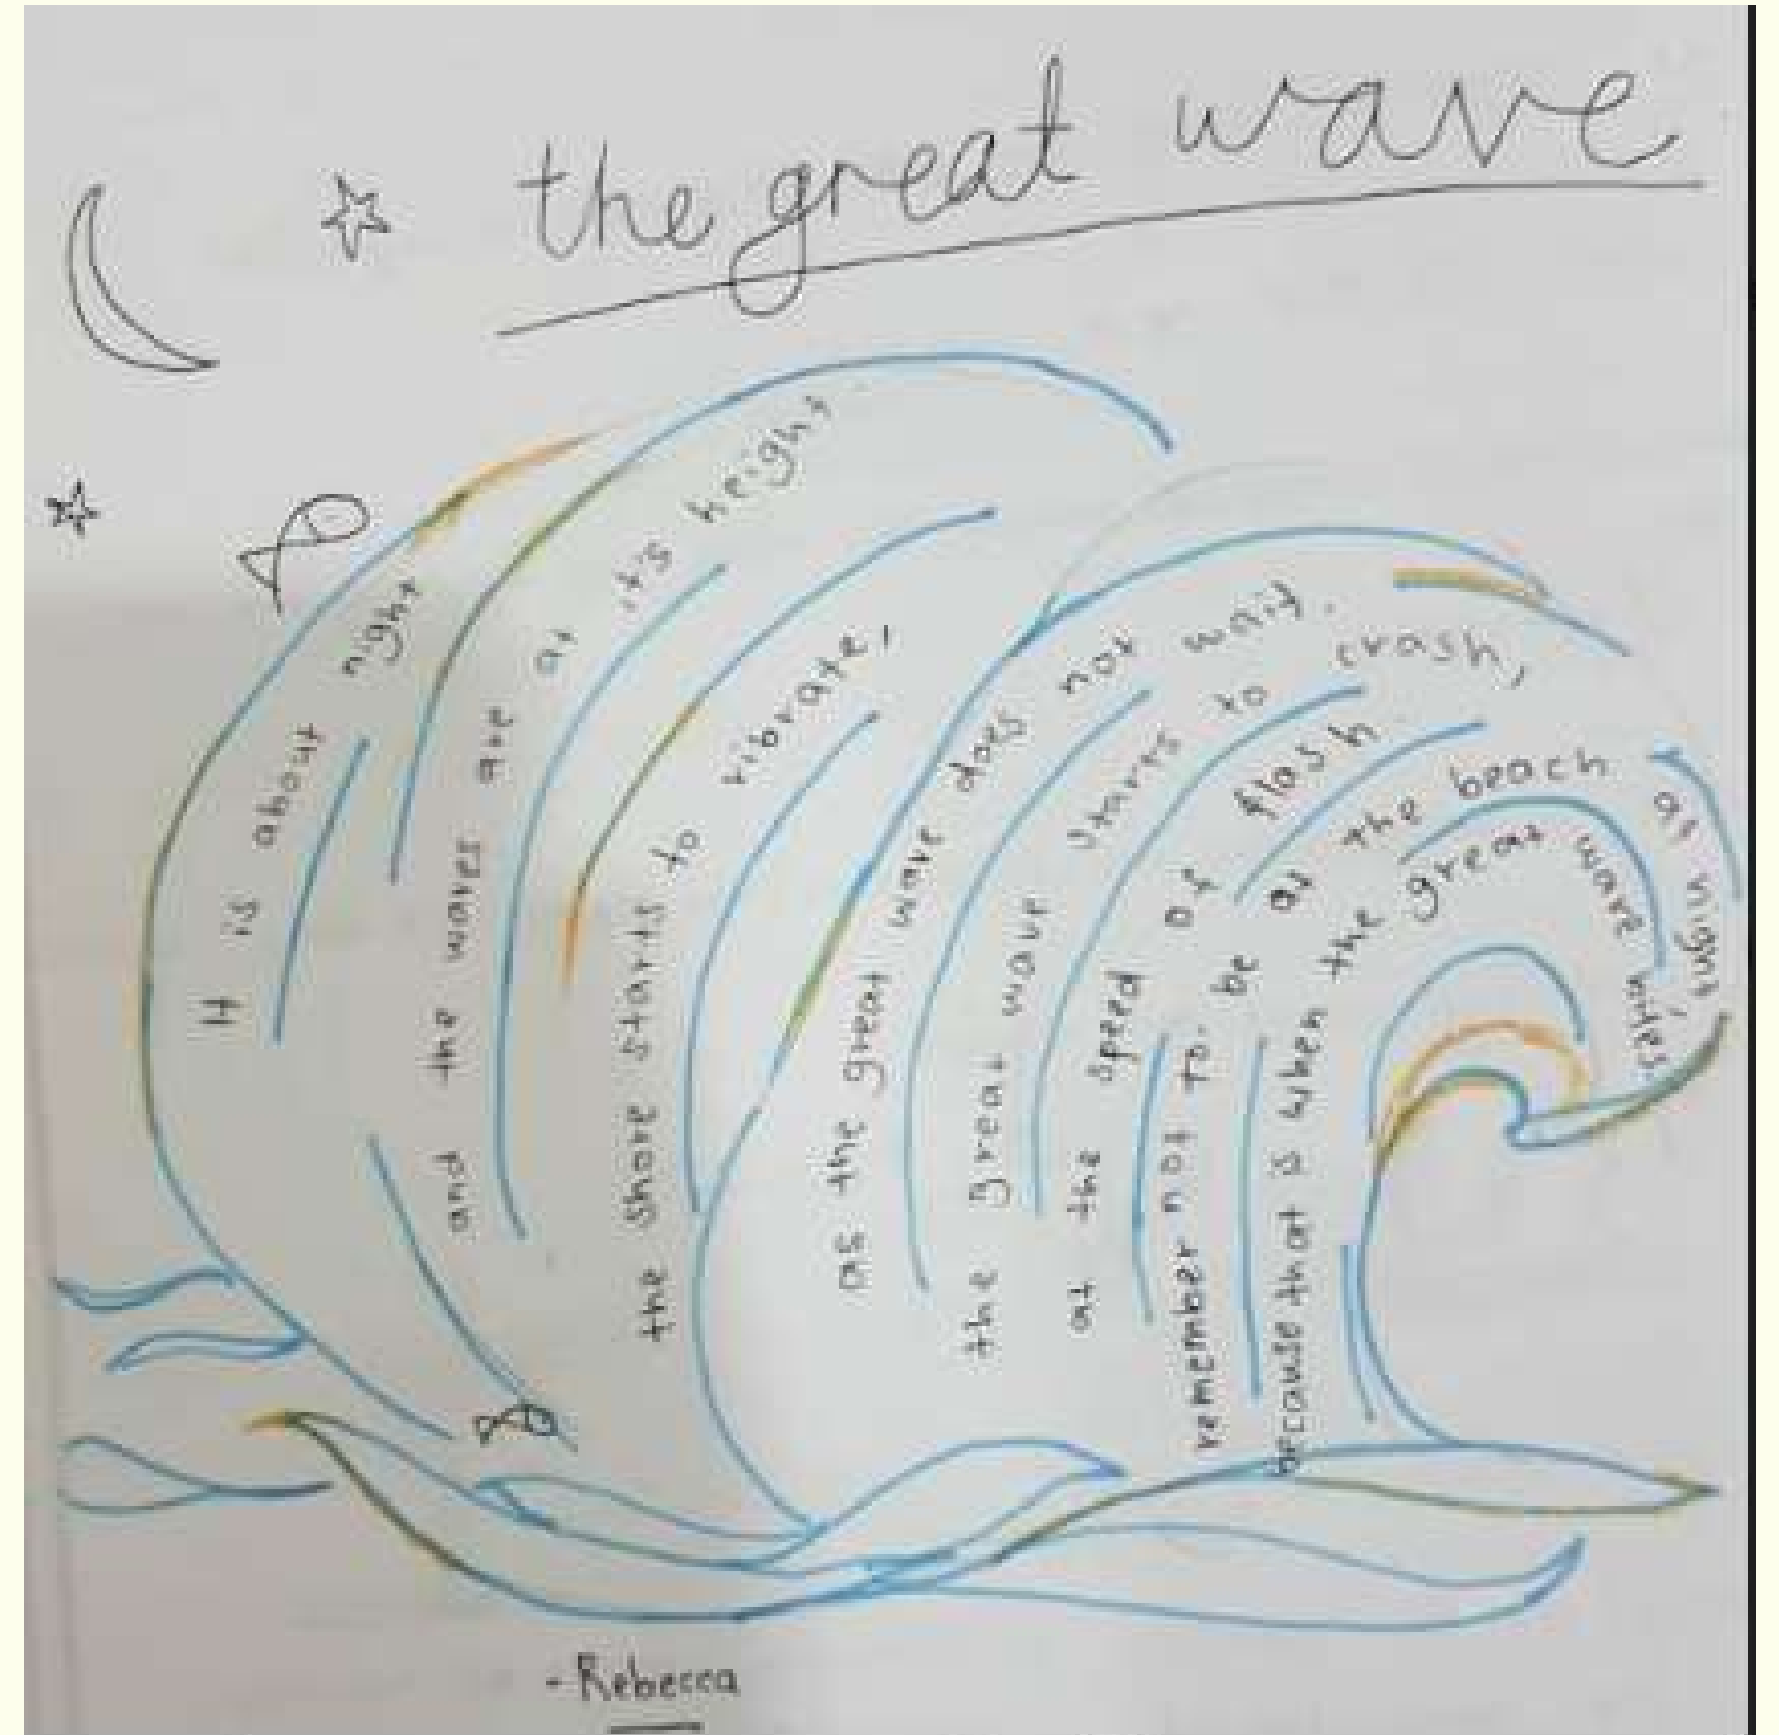 the great wave
It is about night
and the waves are at it's height
the shore starts to vibrate,
as the great wave does not wait.
the great wave starts to crash,
at the speed of flash
remember not to be at the beach at night,
because that is when the great wave
- Rebecca